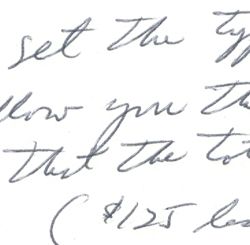 set the ty
llow you th
that the to
($125 les